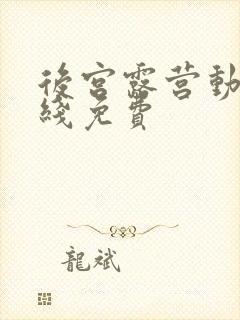 後宮露营動
綫免費
龍斌